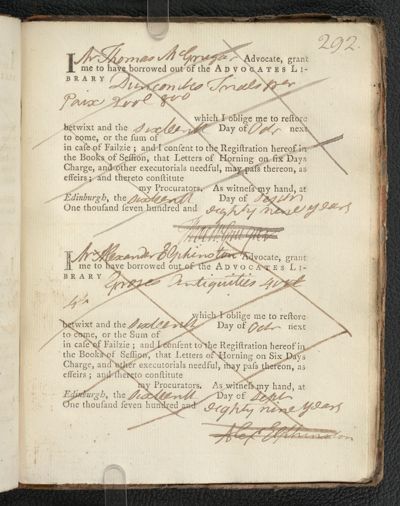 292.
I Mr Thomas McGregor Advocate, grant
me to have borrowed out of the ADVOCATES LI-
BRARY Duncombes Trials per
Paix 2 vol 8vo
which I oblige me to restore
betwixt and the sixteenth Day of Octr next
to come, or the sum of
in case of Failzie; and I consent to the Registration hereof in
the Books of Session, that Letters of Horning on six Days
Charge, and other executorials needful, may pass thereon, as
effeirs; and thereto constitute
my Procurators. As witness my hand, at
Edinburgh, the sixteenth Day of Septr
One thousand seven hundred and eighty nine years
I Mr Alexander Elphinston Advocate, grant
me to have borrowed out of the ADVOCATES LI-
BRARY Groses Antiquities 4 vol
4to
which I oblige me to restore
betwixt and the sixteenth Day of Octr next
to come, or the Sum of
in case of Failzie; and I consent to the Registration hereof in
the Books of Session, that Letters of Horning on Six Days
Charge, and other executorials needful, may pass thereon, as
effeirs; and thereto constitute
my Procurators. As witness my hand, at
Edinburgh, the sixteenth Day of Septr
One thousand seven hundred and eighty nine years
Alex Elphinston